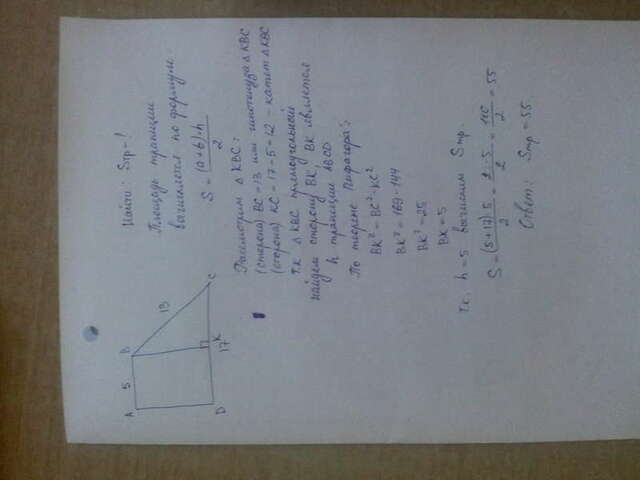 Найти: Sтр-!
Площадь трапеции
вычисляется по формуле:
S = (a+b)·h / 2
A 5 B
13
D 17 K C
Рассмотрим Δ KBC:
(сторона) BC = 13 или гипотенуза Δ KBC
(сторона) KC = 17-5=12 - катет Δ KBC
т.к Δ KBC прямоугольный
найдем сторону BK, BK является
h трапеции ABCD
По теореме Пифагора:
BK² = BC²-KC²
BK² = 169-144
BK² = 25
BK = 5
т.к. h = 5 вычислим Sтр.
S = (5+17)·5 / 2 = 110 / 2 = 55
Ответ: Sтр = 55